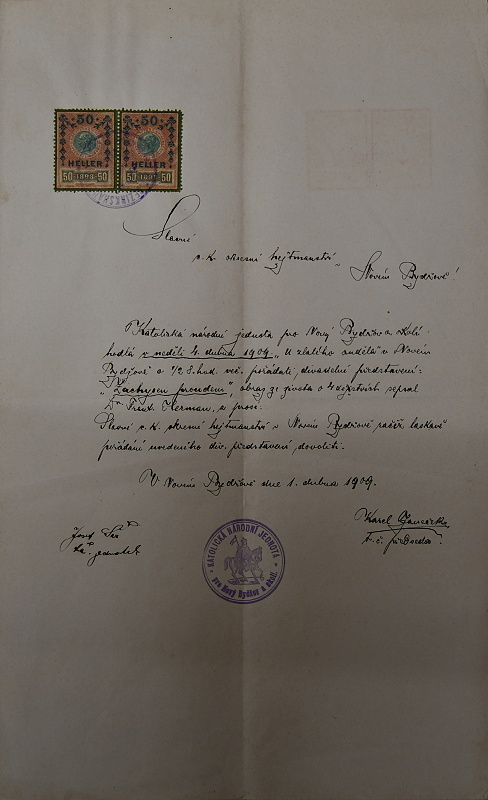 50 50
HELLER HELLER
50 1898 50 50 1898 50
Slavné
c. k. okresní hejtmanství v Novém Bydžově!
Katolická národní jednota pro Nový Bydžov a okolí
hodlá v neděli 4. dubna 1909 „U zlatého anděla" v Novém
Bydžově o 1/2 8. hod. več. pořádati divadelní představení:
„Zachycen proudem", obraz ze života o 4 dějstvích sepsal
Dr. Frant. Heřman, a prosí:
Slavné c. k. okresní hejtmanství v Novém Bydžově račiž laskavě
pořádání uvedeného div. představení dovoliti.
V Novém Bydžově dne 1. dubna 1909.
Josef
t. č. jednatel
Karel
t. č. předseda.
KATOLICKÁ NÁRODNÍ JEDNOTA
pro Nový Bydžov a okolí.